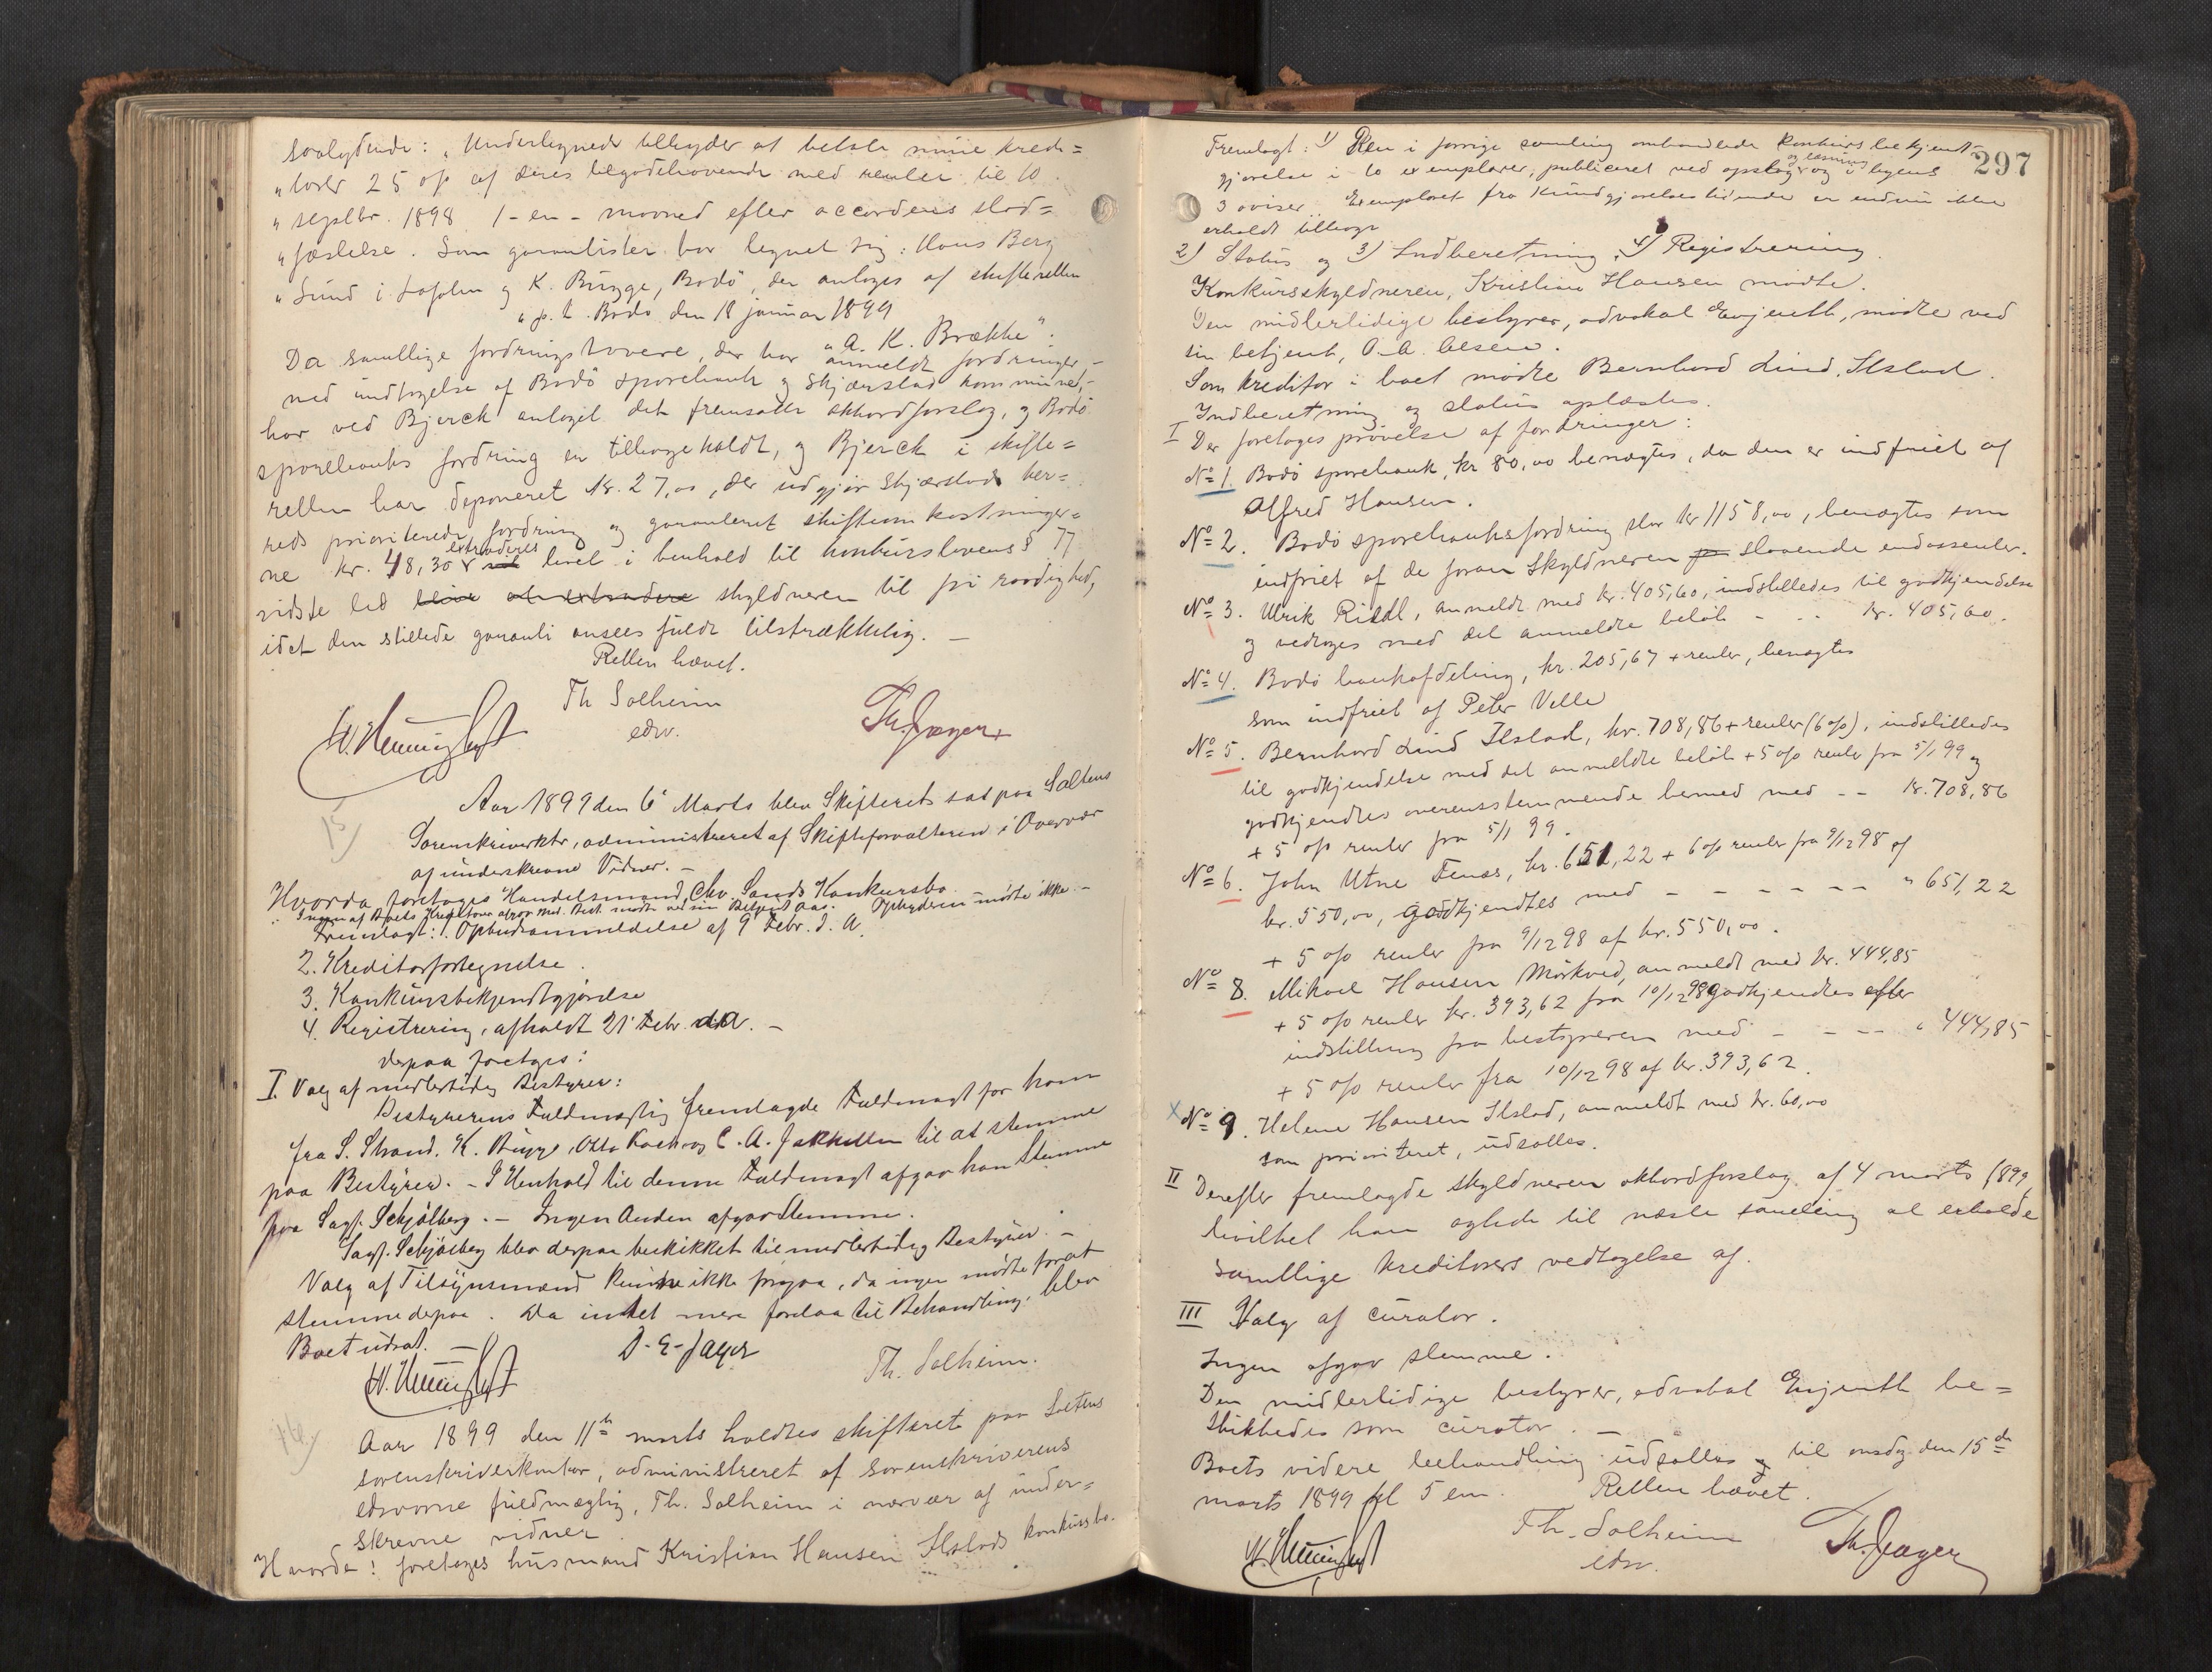 saalydende: "Undertegnede tilbyder at betale mine kredi=
"torer 25 o/o af deres tilgodehavende med renter til 10
"septbr. 1898 1 - en - maaned efter accordens stad=
"fæstelse. Som garantister har tegnet sig: Hans Berg
"Sund i Lofoten og K. Bugge, Bodö, der antages af skifteretten
"p. t. Bodö den 18 januar 1899
"A. K. Brække".
Da samtlige fordringshavere, der har anmeldt fordringer -
med undtagelse af Bodö sparebank og Skjærstad kommune, -
har ved Bjerck antaget det fremsatte akkordforslag, og Bodö
sparebanks fordring er tilbagekaldt, og Bjerck i skifte=
retten har deponeret kr. 27,00, der udgjör Skjærstad her=
reds prioriterede fordring og garanteret skifteomkostninger=
ne kr. 48,30 extraderes boet i henhold til konkurslovens § 77
sidste led skyldneren til fri raadighed,
idet den stillede garanti ansees fuldt tilstrækkelig. -
Retten hævet.
Th Solheim
edsv.
Th. Jæger
15)
Aar 1899 den 6' Marts blev Skifteret sat paa Saltens
Sorenskriverktr, administreret af Skifteforvalteren i Overvær
af underskrevne Vidner. -
Hvorda foretoges Handelsmand Chr. Sands Konkursbo.
Ingen af Boets Kreditorer Mid. Best. mødte ved sin Betjent Aas. Opbyderen mödte ikke -
Fremlagt: 1. Opbudsanmeldelse af 9 Febr. d. A.
2. Kreditorfortegnelse.
3. Konkursbekjendtgjørelse
4. Registrering, afholdt 21' Febr. d.A. -
derpaa foretoges:
I. Valg af midlertidig Bestyrer:
Bestyrerens Fuldmægtig fremlagde Fuldmagt for ham
fra S. Strand, K. Bugge, Otto Koch og C. A. Jakhelln til at stemme
paa Bestyrer. - I Henhold til denne Fuldmagt afgav han Stemme
paa Sagf. Schjölberg. - Ingen Anden afgav Stemme.
Sagf. Schjölberg blev derpaa beskikket til midlertidig Bestyrer. -
Valg af Tilsynsmænd kunde ikke foregaa, da ingen mödte forat
stemme derpaa. Da intet mere forelaa til Behandling, blev
Boet udsat. -
D. E. Jæger
Th. Solheim.
16)
Aar 1899 den 11te marts holdtes skifteret paa Saltens
sorenskriverkontor, administreret af sorenskriverens
edsvorne fuldmægtig, Th. Solheim i nærvær af under=
skrevne vidner.
Hvorda: foretoges husmand Kristian Hansen Ilstads konkursbo.
297
Fremlagt: 1) Den i forrige samling ombandlede konkursbekjendt-
gjørelse i to exemplarer, publiceret ved opslag og læsning og i byens
3 aviser. Exemplaret fra Kundgjørelsestidende er endnu ikke
erholdt tilbage
2) Status og 3) Indberetning. 4) Registrering.
Konkursskyldneren, Kristian Hansen mödte.
Den midlertidige bestyrer, advokat Evjenth, mödte ved
sin betjent, O. A. Olsen.
Som kreditor i boet mödte Bernhard Lind, Ilstad.
Indberetning og status oplæstes.
I Der foretoges prövelse af fordringer:
No 1. Bodö sparebank, kr 80,00 benægtes, da den er indfriet af
Alfred Hansen.
No 2. Bodö sparebanks fordring stor kr 1158,00, benægtes som
indfriet af de foran skyldneren staaende endossenter.
No 3. Ulrik Risdl, anmeldt med kr. 405,60, indstilledes til godkjendelse
og vedtoges med det anmeldte belöb - - - kr. 405,60.
No 4. Bodö bankafdeling, kr. 205,67 + renter, benægtes
som indfriet af Peter Velle
No 5. Bernhard Lind Ilstad, kr. 708,86 + renter (6 o/o), indstilledes
til godkjendelse med det anmeldte belöb + 5 o/o renter fra 5/1 99 og
godkjendtes overensstemmende hermed med - - kr. 708,86
+ 5 o/o renter fra 5/1 99.
No 6. John Utne Fenes, kr. 651,22 + 6 o/o renter fra 9/12 98 af
kr. 550,00, godkjendtes med - - - - - - " 651,22
+ 5 o/o renter fra 9/12 98 af kr. 550,00.
No 8. Mikael Hansen Mörkved, anmeldt med kr. 444,85
+ 5 o/o renter kr. 393,62 fra 10/12 98 godkjendtes efter
indstilling fra bestyreren med - - - - " 444,85
+ 5 o/o renter fra 10/12 98 af kr. 393,62.
x No 9. Helene Hansen Ilstad, anmeldt med kr. 60,00
som prioriteret, udsattes.
II Derefter fremlagde skyldneren akkordforslag af 4 marts 1899,
hvilket han agtede til næste samling at erholde
samtlige kreditorers vedtagelse af.
III Valg af curator.
Ingen afgav stemme.
Den midlertidige bestyrer, advokat Evjenth be=
skikkedes som curator. -
Boets videre behandling udsattes til onsdag den 15de
marts 1899 kl 5 em. Retten hævet.
Th. Solheim
edsv.
Th. Jæger